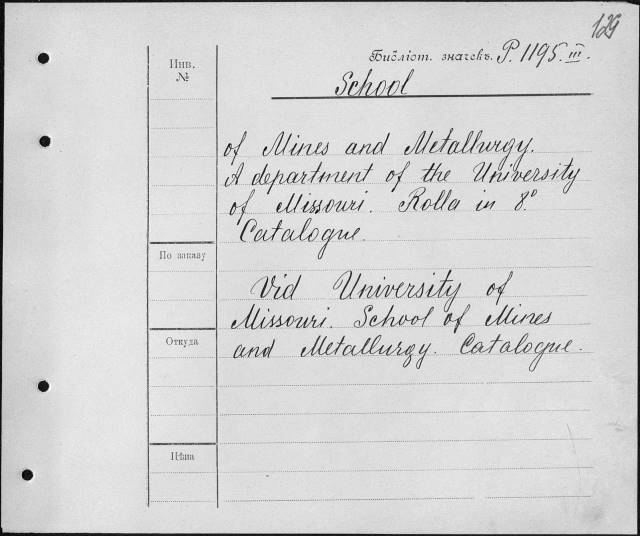 129
Инв. №
Библіот. значекъ. P. 1195. III.
School
of Mines and Metallurgy.
A department of the University
of Missouri. Rolla in 8º.
Catalogue.
По заказу
Vid University of
Missouri. School of Mines
Откуда
and Metallurgy. Catalogue.
Цѣна